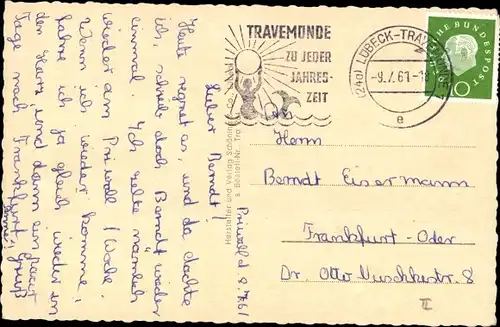 TRAVEMÜNDE
ZU JEDER
JAHRES-
ZEIT
(24a) LÜBECK-TRAVEMÜNDE
-9.7.61-18
e
DEUTSCHE BUNDESPOST
10
Priwall d. 8.7.61
Lieber Berndt!
Heute regnet es, und da dachte
ich, schreib doch Berndt wieder
einmal. Ich zelte nämlich
wieder am Priwall 1 Woche.
Wenn ich wieder komme,
fahre ich ja gleich wieder in
den Harz, und dann ein paar
Tage nach Frankfurt. Gruß
Hersteller und Verlag Schöning
Herrn
Berndt Eisermann
Frankfurt-Oder
Dr. Otto Nuschkestr. 8
II